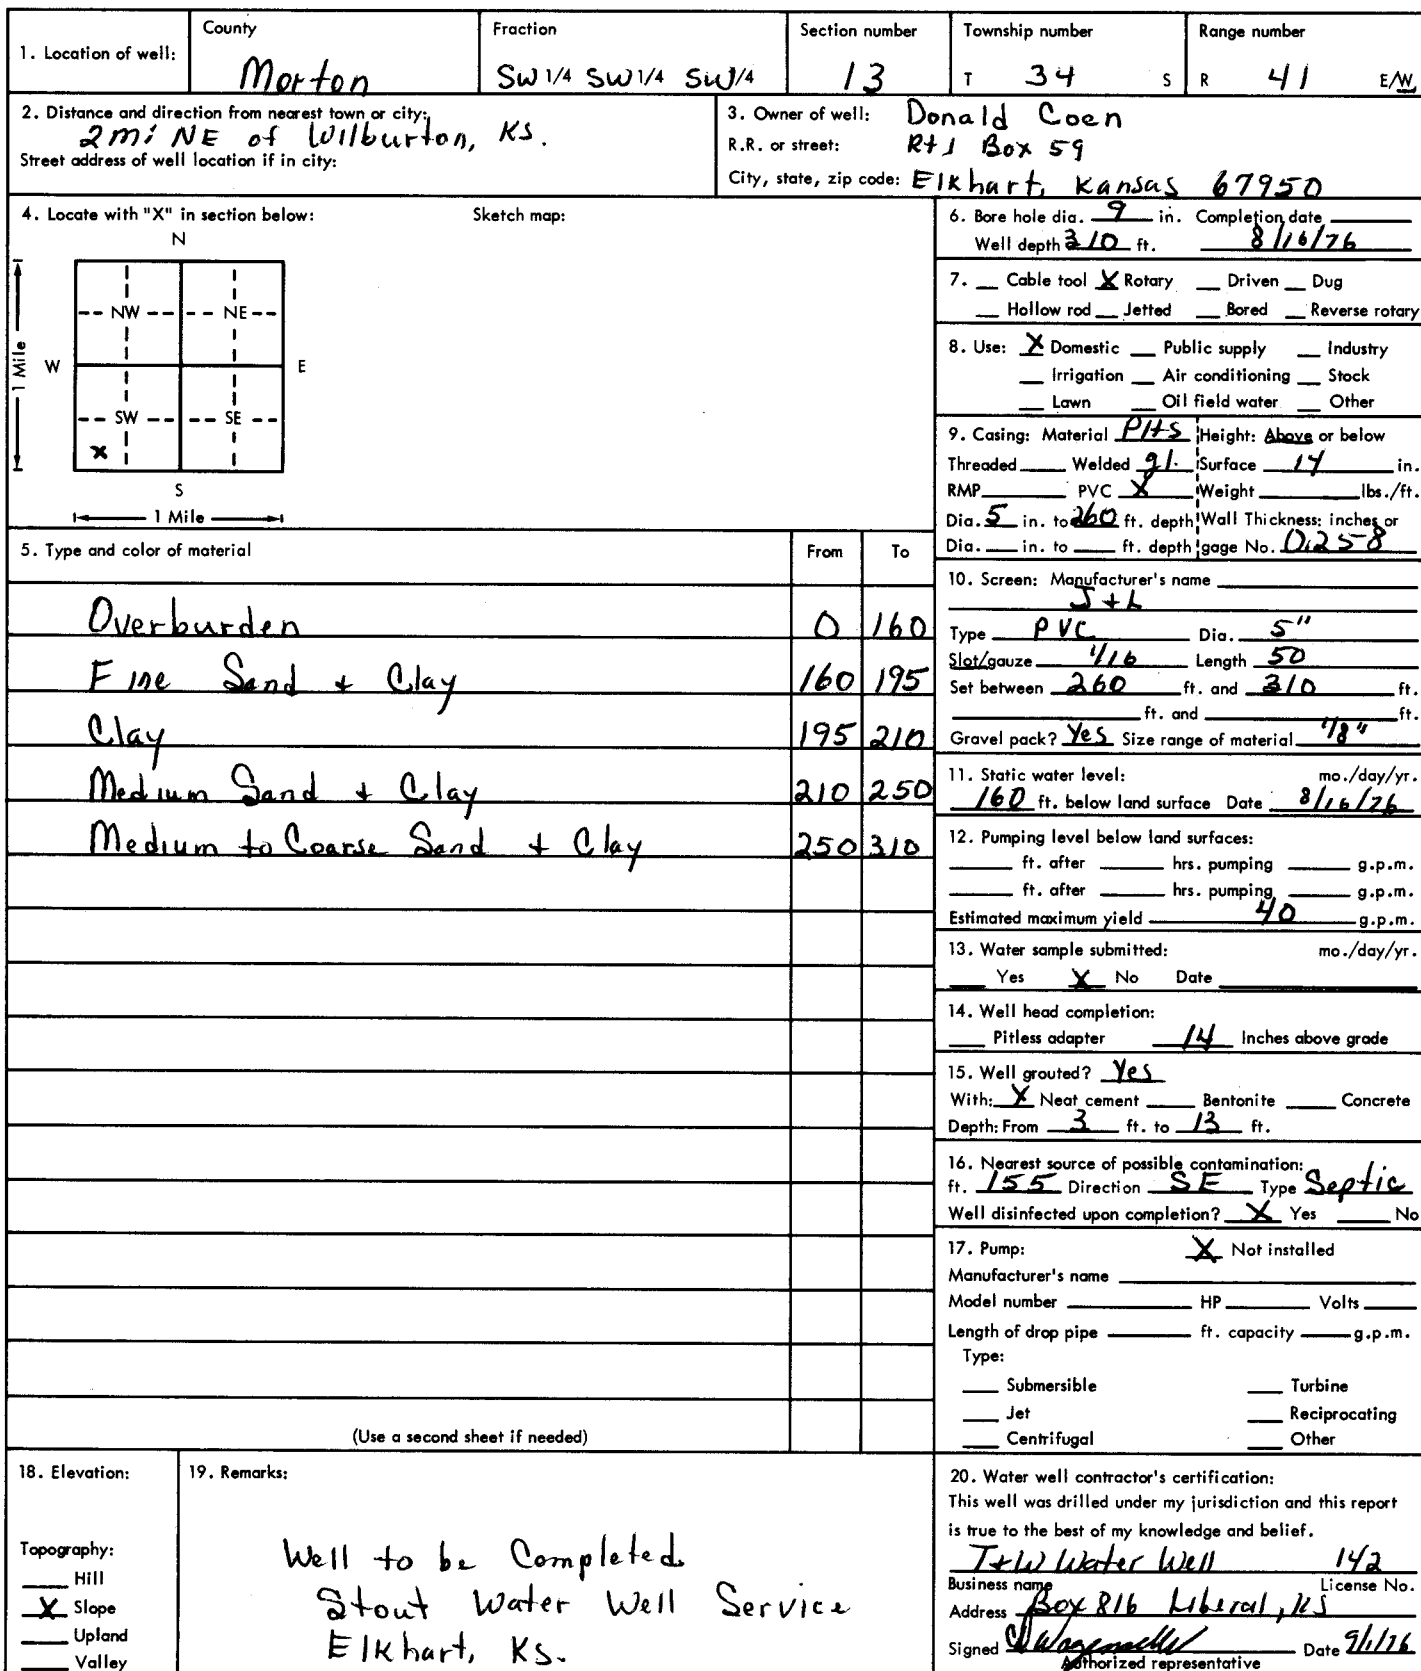 1. Location of well:
County
Morton
Fraction
SW 1/4 SW 1/4 SW 1/4
Section number
13
Township number
T 34 S
Range number
R 41 E/W
2. Distance and direction from nearest town or city:
2 mi NE of Wilburton, KS.
Street address of well location if in city:
3. Owner of well: Donald Coen
R.R. or street: Rt 1 Box 59
City, state, zip code: Elkhart, Kansas 67950
4. Locate with "X" in section below: Sketch map:
N
NW NE
W E
1 Mile
SW SE
X
S
1 Mile
5. Type and color of material From To
Overburden 0 160
Fine Sand + Clay 160 195
Clay 195 210
Medium Sand + Clay 210 250
Medium to Coarse Sand + Clay 250 310
(Use a second sheet if needed)
6. Bore hole dia. 9 in. Completion date
Well depth 310 ft. 8/16/76
7. __ Cable tool X Rotary __ Driven __ Dug
__ Hollow rod __ Jetted __ Bored __ Reverse rotary
8. Use: X Domestic __ Public supply __ Industry
__ Irrigation __ Air conditioning __ Stock
__ Lawn __ Oil field water __ Other
9. Casing: Material Height: Above or below
Threaded ___ Welded gl. Surface 14 in.
RMP ___ PVC X Weight ___ lbs./ft.
Dia. 5 in. to 260 ft. depth Wall Thickness: inches or
Dia. ___ in. to ___ ft. depth gage No. 0.258
10. Screen: Manufacturer's name
J + L
Type PVC Dia. 5"
Slot/gauze 1/16 Length 50
Set between 260 ft. and 310 ft.
___ ft. and ___ ft.
Gravel pack? Yes Size range of material 1/8"
11. Static water level: mo./day/yr.
160 ft. below land surface Date 8/16/76
12. Pumping level below land surfaces:
___ ft. after ___ hrs. pumping ___ g.p.m.
___ ft. after ___ hrs. pumping ___ g.p.m.
Estimated maximum yield 40 g.p.m.
13. Water sample submitted: mo./day/yr.
___ Yes X No Date ___
14. Well head completion:
___ Pitless adapter 14 Inches above grade
15. Well grouted? Yes
With: X Neat cement ___ Bentonite ___ Concrete
Depth: From 3 ft. to 13 ft.
16. Nearest source of possible contamination:
ft. 155 Direction SE Type Septic
Well disinfected upon completion? X Yes ___ No
17. Pump: X Not installed
Manufacturer's name ___
Model number ___ HP ___ Volts ___
Length of drop pipe ___ ft. capacity ___ g.p.m.
Type:
___ Submersible ___ Turbine
___ Jet ___ Reciprocating
___ Centrifugal ___ Other
18. Elevation:
Topography:
___ Hill
X Slope
___ Upland
___ Valley
19. Remarks:
Well to be Completed
Stout Water Well Service
Elkhart, KS.
20. Water well contractor's certification:
This well was drilled under my jurisdiction and this report
is true to the best of my knowledge and belief.
T+W Water Well 142
Business name License No.
Address Box 816 Liberal, KS
Signed Date 9/1/76
Authorized representative